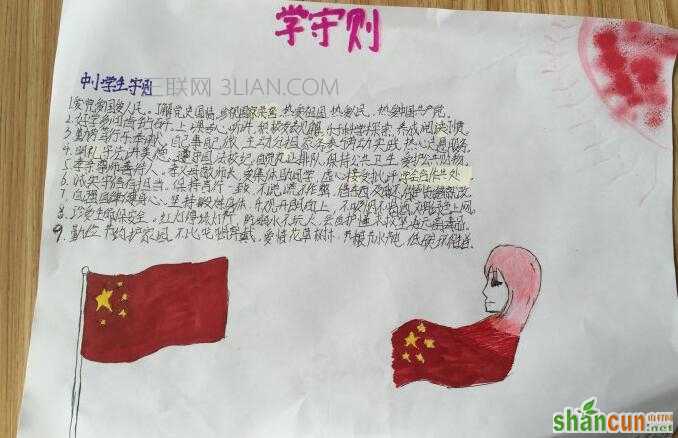 学守则
三联网 3LIAN.COM
中小学生守则
1.爱党爱国爱人民。了解党史国情，珍视国家荣誉，热爱祖国，热爱人民，热爱中国共产党。
2.好学多问肯钻研。上课专心听讲，积极发表见解，乐于科学探索，养成阅读习惯。
3.勤劳笃行乐奉献。自己事自己做，主动分担家务，参与劳动实践，热心志愿服务。
4.明礼守法讲美德。遵守国法校纪，自觉礼让排队，保持公共卫生，爱护公共财物。
5.孝亲尊师善待人。孝父母敬师长，爱集体助同学，虚心接受批评，学会合作共处。
6.诚实守信有担当。保持言行一致，不说谎不作弊，借东西及时还，做到知错就改。
7.自强自律健身心。坚持锻炼身体，乐观开朗向上，不吸烟不喝酒，文明绿色上网。
8.珍爱生命保安全。红灯停绿灯行，防溺水不玩火，会自护懂求救，坚决远离毒品。
9.勤俭节约护家园。不比吃喝穿戴，爱惜花草树木，节粮节水节电，低碳环保
shancun 山村网
.net